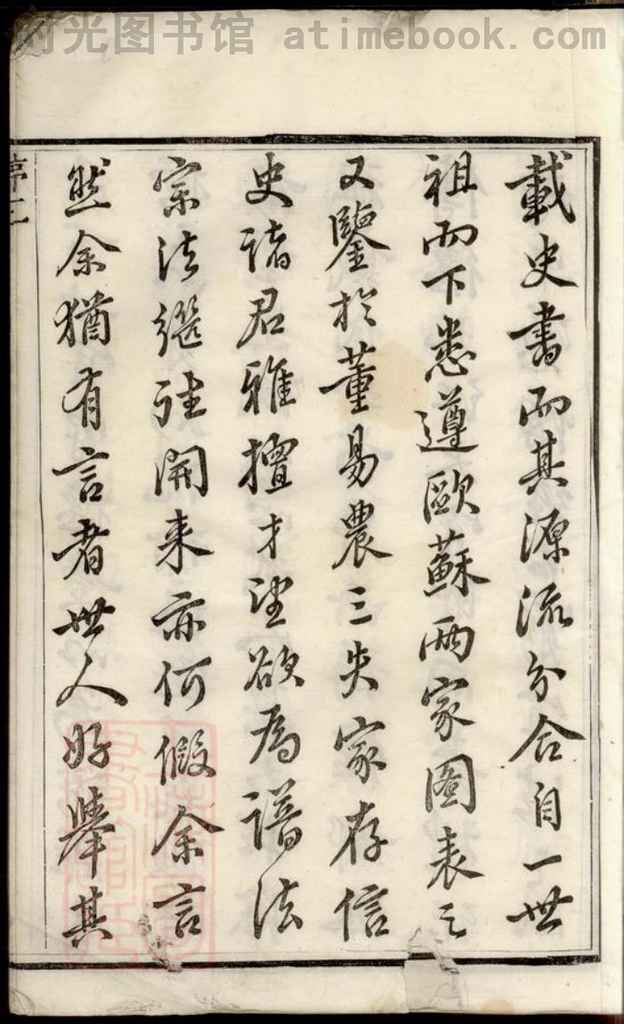 时光图书馆 atimebook.com
載史書而其源流分合自一世
祖而下悉遵歐蘇兩家圖表之
又鑒於董易農三失家存信
史諸君雅擅才望欲為譜法
宗法繼往開来亦何假余言
然余猶有言者世人好舉其
序二